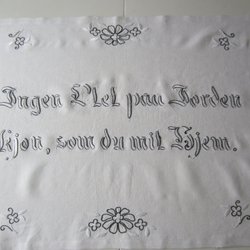 Ingen Plet paa Jorden
skjøn, som du mit Hjem.